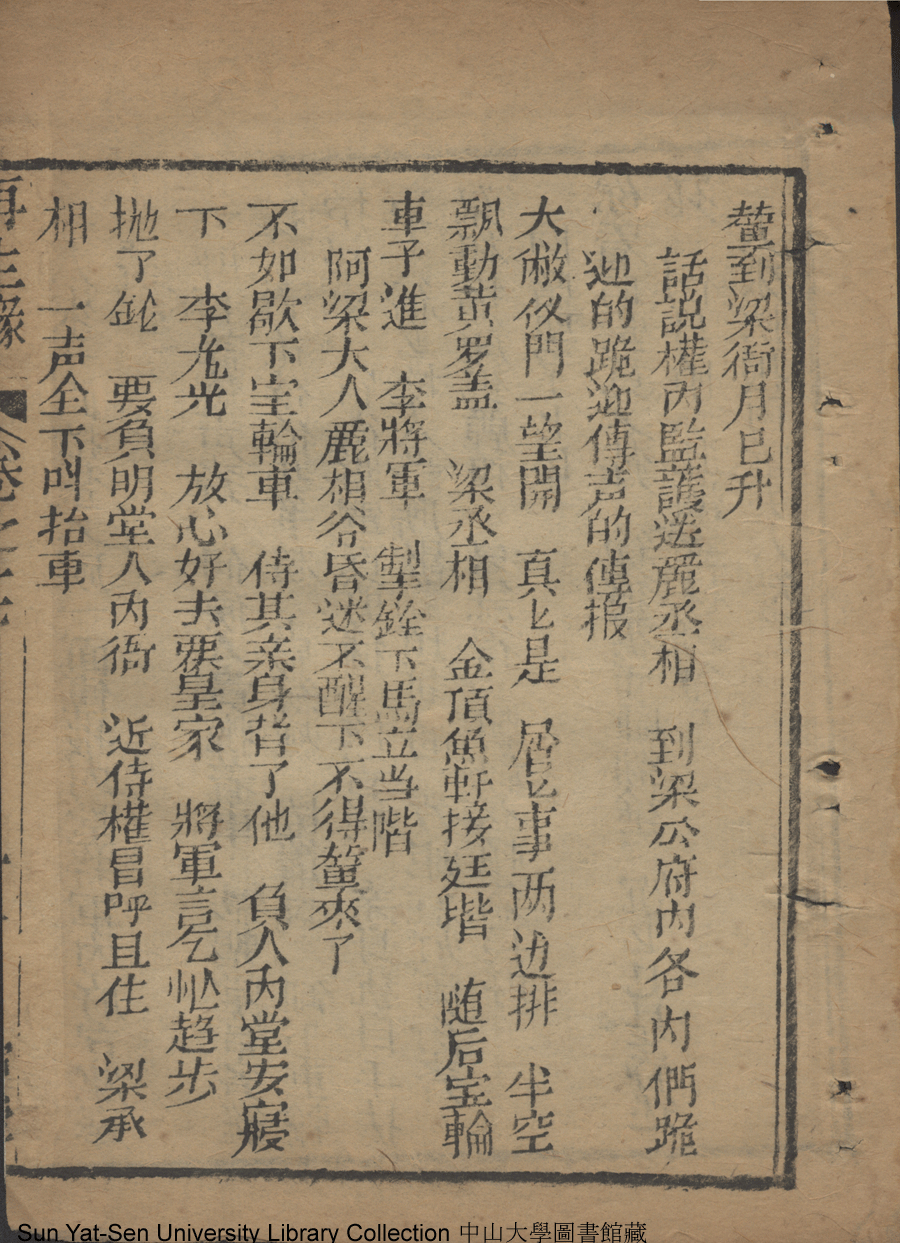 輦到梁衙月已升
話說權內監護送麗丞相　到梁公府內各內們跪
迎的跪迎傳声的傳报
大敝仪門一望開　真〻是　層〻事两边排　半空
飘動黃罗盖　梁丞相　金頂魚軒接廷堦　随后宝輪
車子進　李將軍　掣鞍下馬立当階
阿梁大人麗相谷昏迷不醒下不得輦來了
不如歇下宝輪車　侍其亲身背了他　負入內堂安寢
下　李尤光　放心好去要皇家　將軍言乞忙趋步
抛了　要負明堂入內衙　近侍權冒呼且住　梁承
相　一声全下叫抬車
再生緣　卷之十六
Sun Yat-Sen University Library Collection 中山大學圖書館藏